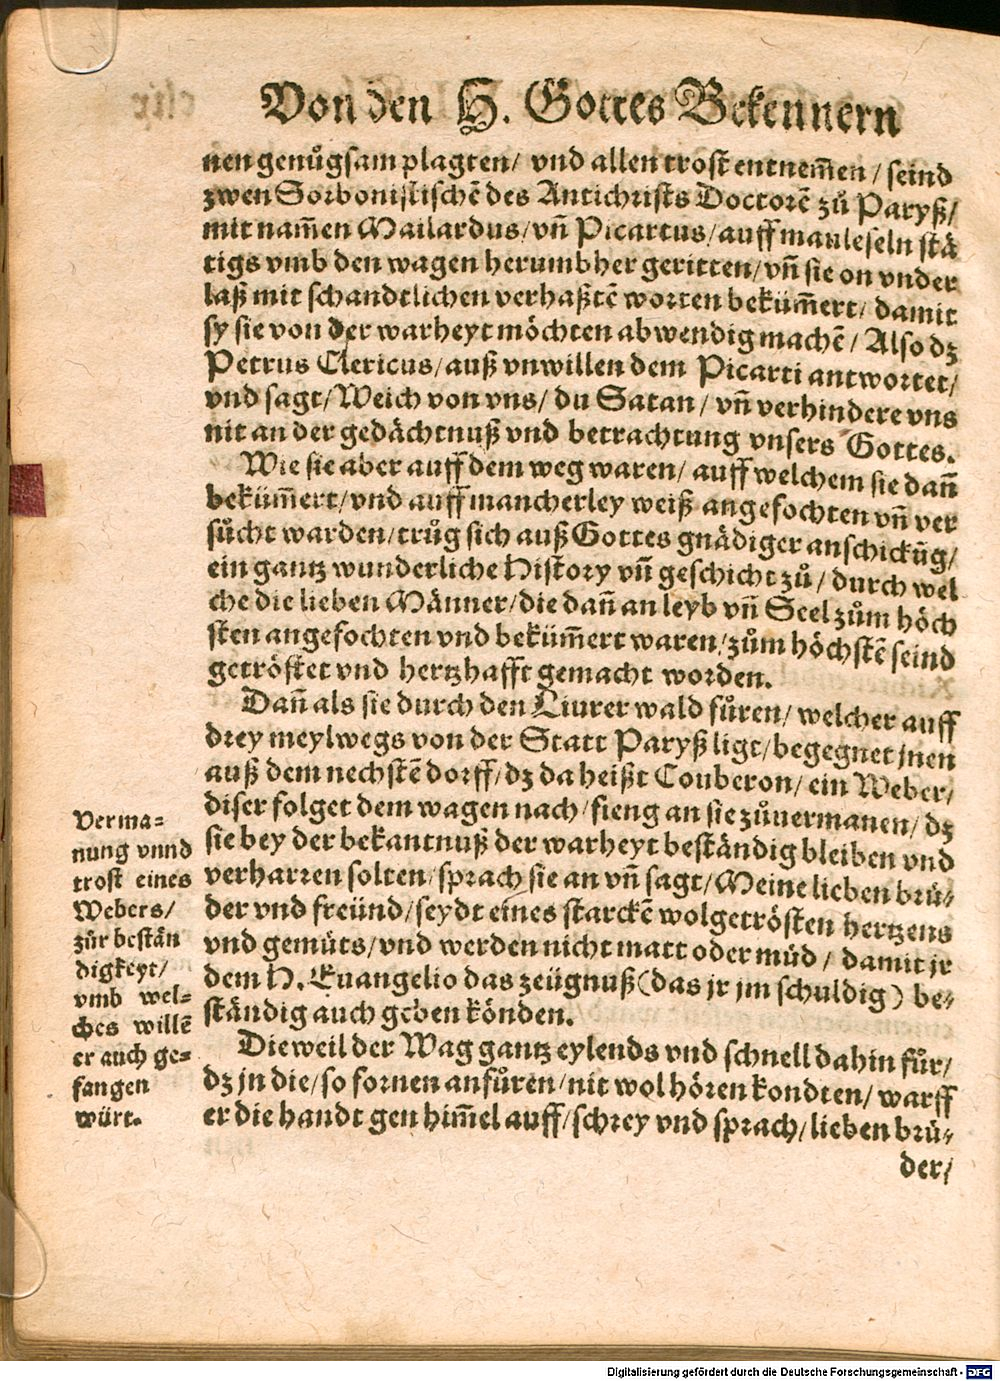 Von den H. Gottes Bekennern
nen genůgsam plagten/ vnd allen trost entnem̄en / seind
zwen Sorbonistischē des Antichrists Doctorē zů Paryß/
mit nam̄en Mailardus/ vn̄ Picartus/ auff mauleseln stä
tigs vmb den wagen herumbher geritten/ vn̄ sie on vnder
laß mit schandtlichen verhaßtē worten beküm̄ert/ damit
sy sie von der warheyt möchten abwendig machē / Also dz
Petrus Clericus/ auß vnwillen dem Picarti antwortet/
vnd sagt/ Weich von vns/ du Satan / vn̄ verhindere vns
nit an der gedächtnuß vnd betrachtung vnsers Gottes.
Wie sie aber auff dem weg waren/ auff welchem sie dan̄
beküm̄ert/ vnd auff mancherley weiß angefochten vn̄ ver
sůcht warden/ trůg sich auß Gottes gnädiger anschickūg/
ein gantz wunderliche History vn̄ geschicht zů / durch wel
che die lieben Männer/ die dan̄ an leyb vn̄ Seel zům höch
sten angefochten vnd beküm̄ert waren/ zům höchstē seind
getröstet vnd hertzhafft gemacht worden.
Dan̄ als sie durch den Liurer wald fůren/ welcher auff
drey meylwegs von der Statt Paryß ligt/ begegnet jnen
auß dem nechstē dorff/ dz da heißt Couberon/ ein Weber/
diser folget dem wagen nach/ fieng an sie zůuermanen/ dz
sie bey der bekantnuß der warheyt beständig bleiben vnd
verharren solten/ sprach sie an vn̄ sagt/ Meine lieben brü-
der vnd freünd/ seydt eines starckē wolgetrösten hertzens
vnd gemüts/ vnd werden nicht matt oder müd / damit jr
dem H. Euangelio das zeügnuß (das jr jm schuldig) be-
ständig auch geben könden.
Dieweil der Wag gantz eylends vnd schnell dahin fůr/
dz jn die/ so fornen anfůren/ nit wol hören kondten/ warff
er die handt gen him̄el auff/ schrey vnd sprach/ lieben brü-
der/
Verma-
nung vnnd
trost eines
Webers/
zůr bestän
digkeyt/
vmb wel-
ches willē
er auch ge-
fangen
würt.
Digitalisierung gefördert durch die Deutsche Forschungsgemeinschaft - DFG